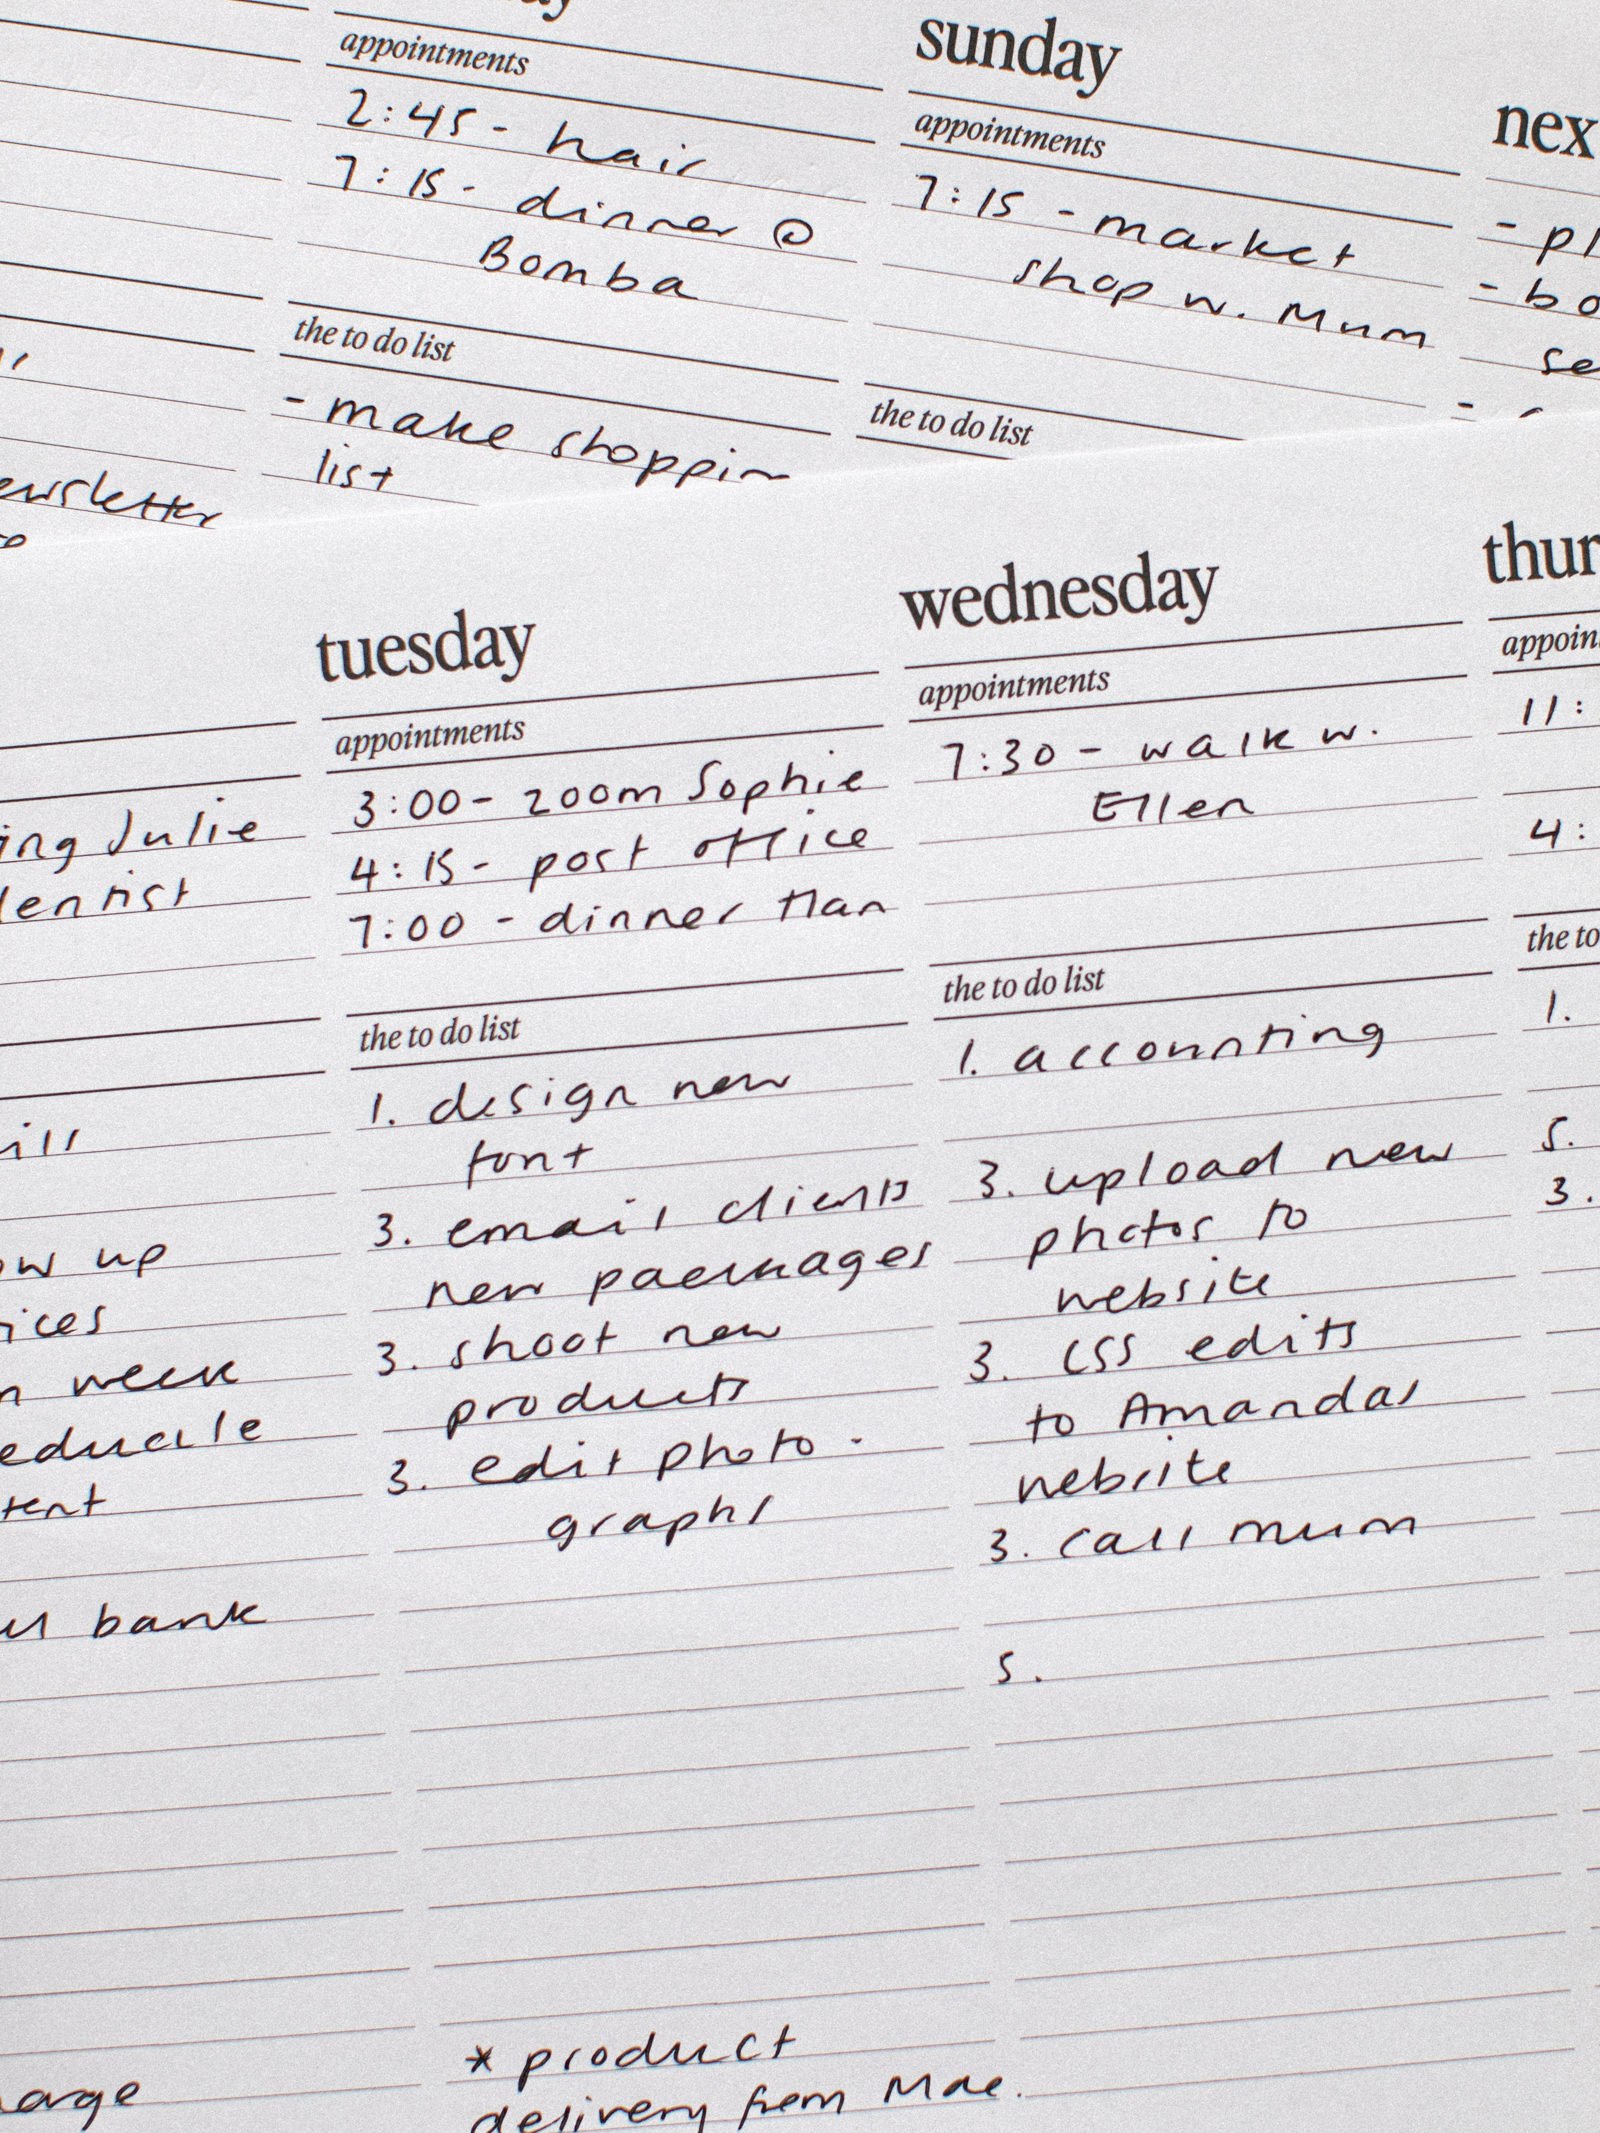 appointments
2:45 - hair
7:15 - dinner @
Bomba
the to do list
- make shoppin
list
sunday
appointments
7:15 - market
shop w. Mum
the to do list
nex
- pl
- bo
se
ewsletter
ing Julie
entist
ill
ow up
ices
n week
tent
bank
arge
tuesday
appointments
3:00 - zoom Sophie
4:15 - post office
7:00 - dinner Han
the to do list
1. design new
font
3. email clients
new packages
3. shoot new
products
3. edit photo -
graphs
* product
delivery from Mae.
wednesday
appointments
7:30 - walk w.
Ellen
the to do list
1. accounting
3. upload new
photos to
website
3. CSS edits
to Amandas
website
3. call mum
5.
thur
appoin
11:
4:
the to
1.
5.
3.